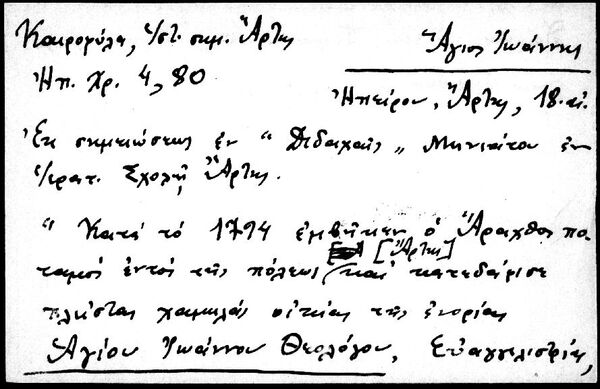 Καιροφύλα, Ἱστ. σημ. Ἄρτης
Ἅγιος Ἰωάννης
Ἠπ. Χρ. 4, 80
Ἠπείρου, Ἄρτης, 18. αἰ.
Ἐκ σημειώσεως ἐν " Διδαχαῖς „ Μηνιάτου ἐν
Ἱερατ. Σχολῇ Ἄρτης.
" Κατὰ τὸ 1794 ἐμβῆκεν ὁ Ἄραχθος πο-
[Ἄρτης]
ταμὸς ἐντὸς τῆς πόλεως καὶ κατεδάφισε
πλείστας χαμηλὰς οἰκίας τῆς ἐνορίας
Ἁγίου Ἰωάννου Θεολόγου, Εὐαγγελιστρίας,